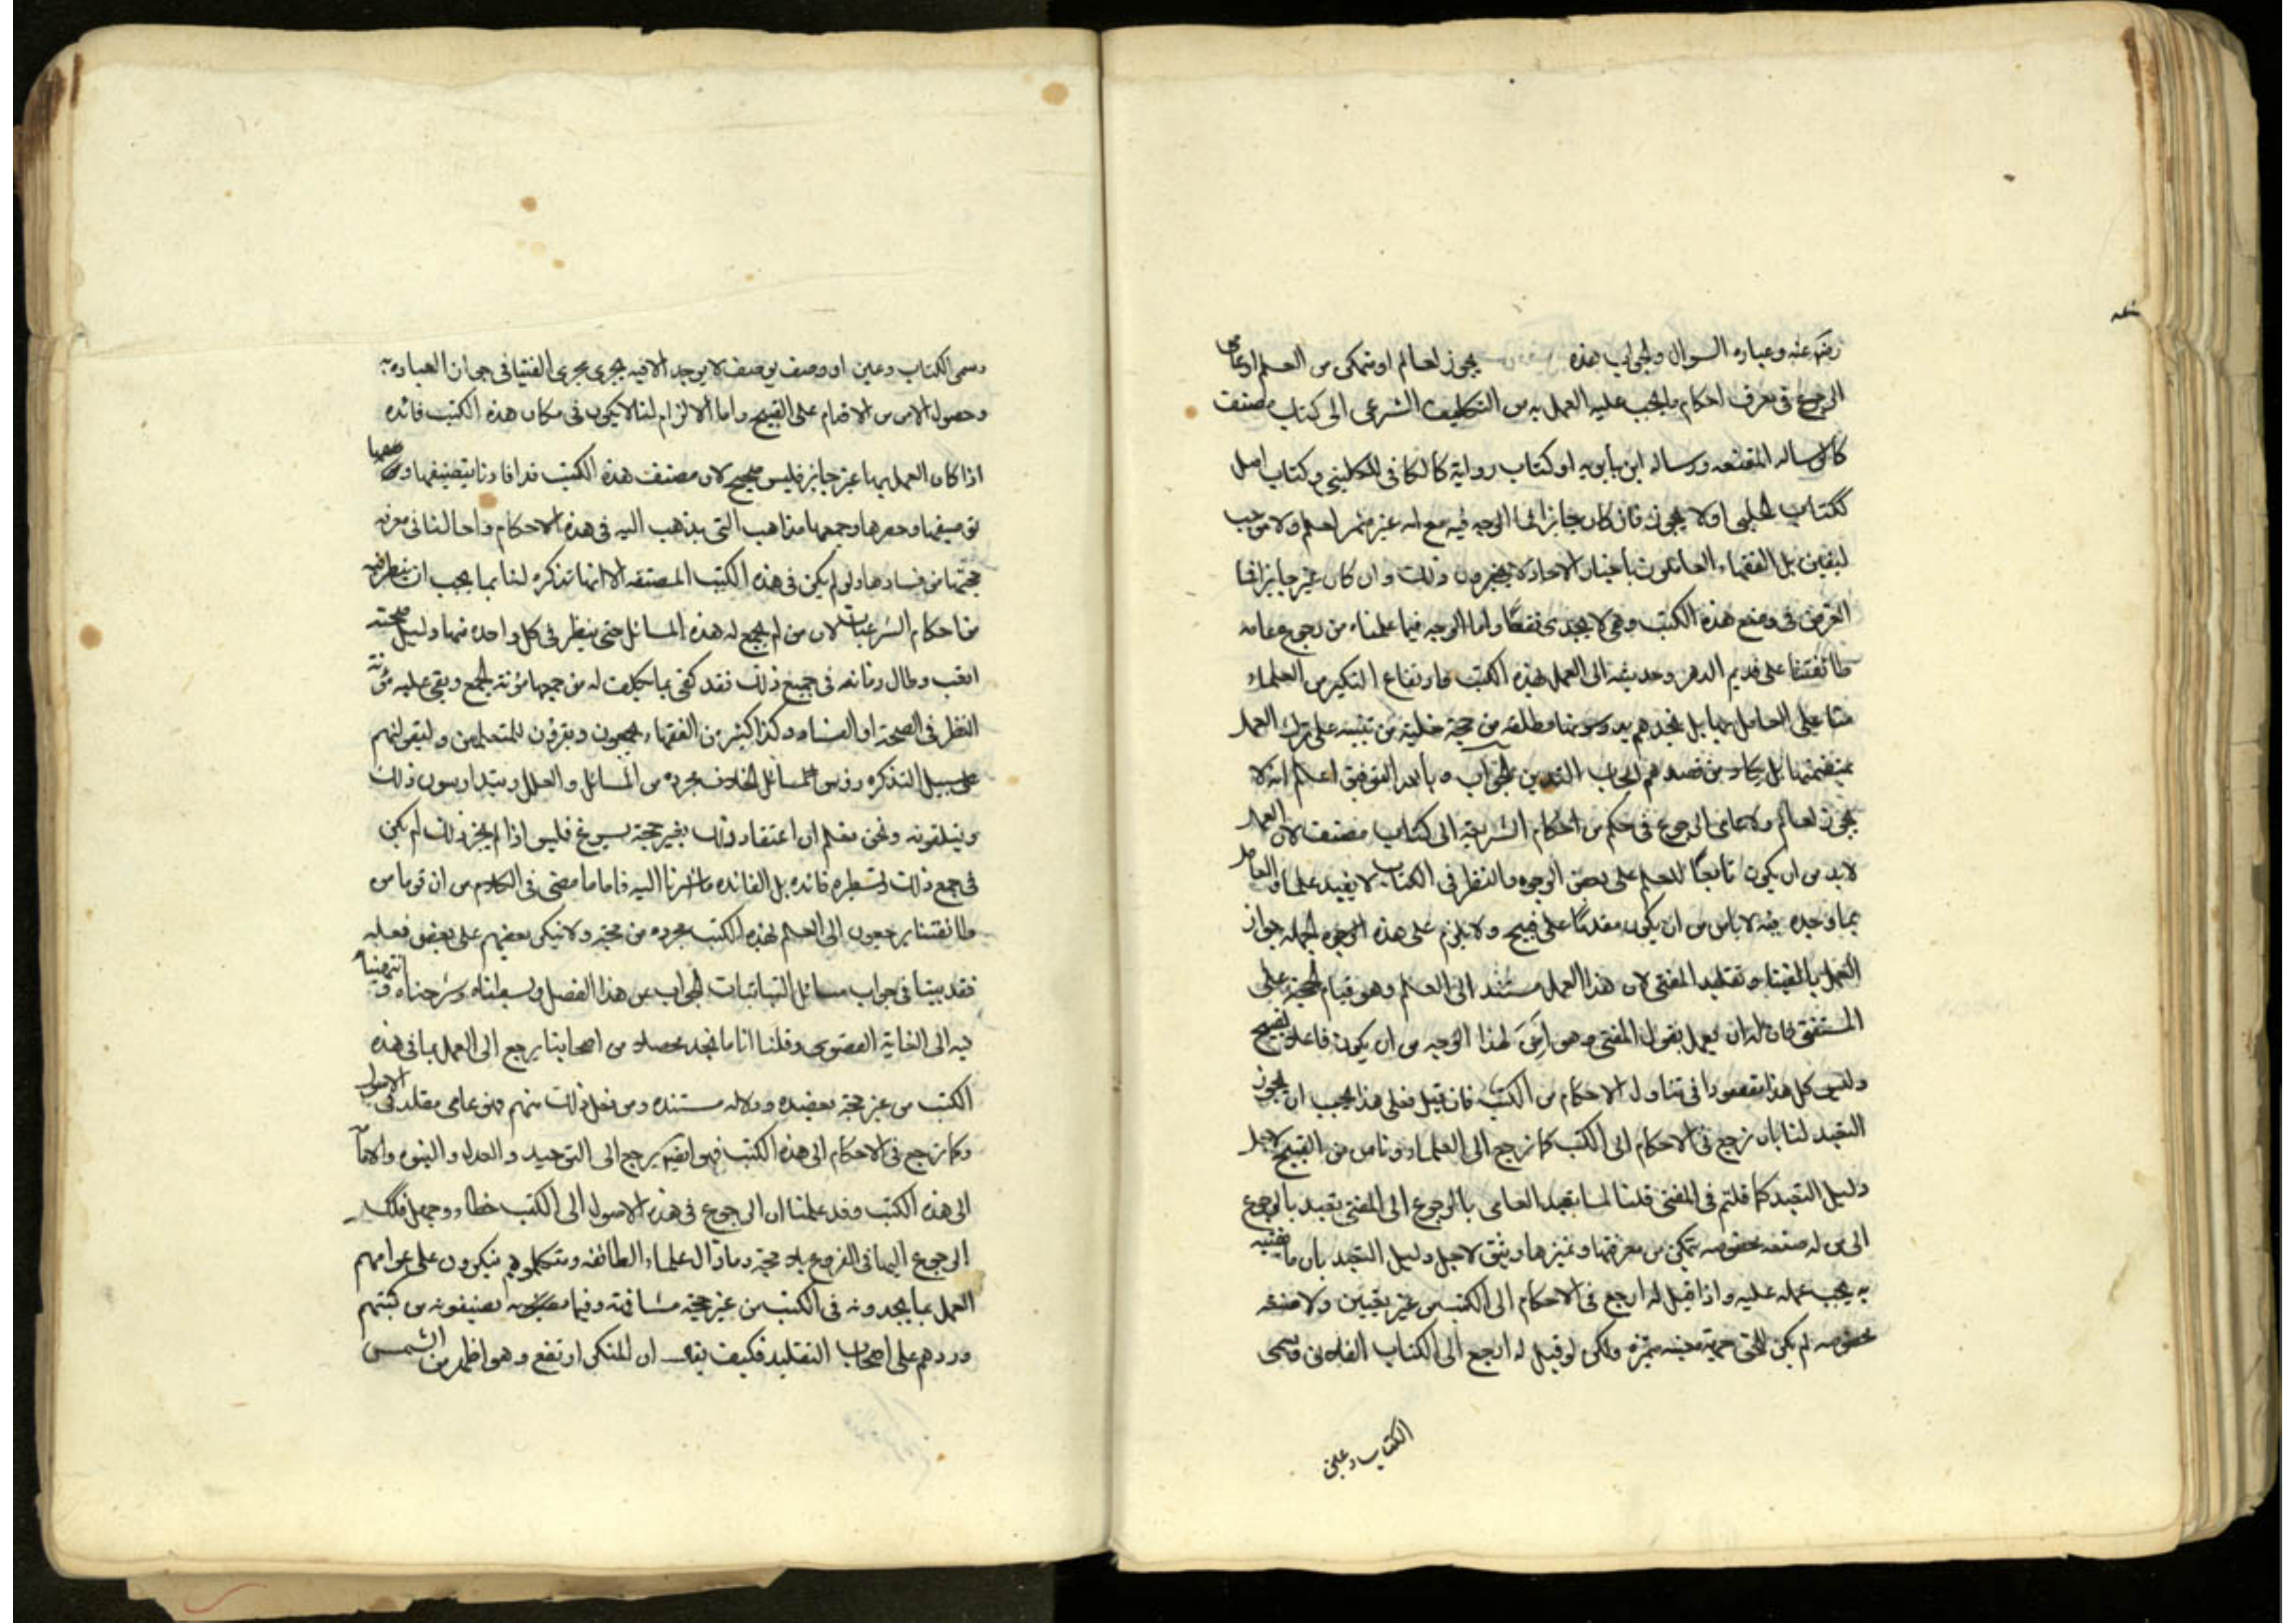 رضي عنه وعباره السوال والجواب هذه يجوز لعالم او متمكن من العلم او عامي
الرجوع في تعرف احكام ما يجب عليه العمل به من التكليف الشرعي الى كتاب مصنف
كالرساله المقنعه ورساله ابن بابويه او كتاب رواية كالكافي للكليني وكتاب اصل
ككتاب الحلبي او لا يجوز فان كان جايزا فما الوجه فيه مع انه غير مثمر لعلم ولا موجب
ليقين بل الفقهاء العاملون باخبار الاحاد لا يجيزون ذلك وان كان غير جايز فما
الغرض في وضع هذه الكتب وهي لا يجدى نفعًا واما الوجه فيما علمناه من رجوع عامه
طائفتنا على قديم الدهر وحديثه الى العمل بهذه الكتب وارتفاع النكير من العلماء
منا على العامل بها بل نجدهم يدرسونها مطلقه من حجة خلية من تنبيه على ترك العمل
بمتضمنها بل يكاد من قصدهم ايجاب التدين الجواب وبالله التوفيق اعلم انه لا
يجوز لعالم ولا عامي الرجوع في حكم من احكام الشريعة الى كتاب مصنف لان العمل
لابد من ان يكون تابعًا للعلم على بعض الوجوه والنظر في الكتاب لا يفيد علما والعامل
بما وجده فيه لا يامن من ان يكون مقدمًا على قبيح ولا يلزم على هذه الوجوه الجمله جواز
العمل بالفتيا وتقليد المفتي لان هذا العمل مستند الى العلم وهو قيام الحجة على
المستفتي بان له ان يعمل بقول المفتي وهو امن لهذا الوجه من ان يكون فاعلا لقبيح
وليس كل هذا مقصودا في تناول الاحكام من الكتب فان قيل فعلى هذا يجب ان يجوز
التعبد لنا بان نرجع في الاحكام الى الكتب كما نرجع الى العلماء ونامن من القبيح لاجل
دليل التعبد كما قلتم في المفتي قلنا لما تعبد العامي بالرجوع الى المفتي تعبد بالرجوع
الى من له صنعه مخصوصه يتمكن من معرفتها وتميزها ويثق لاجل دليل التعبد بان ما يفتيه
به يجب عمله عليه واذا قيل له ارجع في الاحكام الى الكتب من غير تعيين ولا صنعه
مخصوصه لم يكن للحق جهة معينه متميزه ولكن لو قيل له ارجع الى الكتاب الفلاني وسمى
الكتاب وعين
وسمى الكتاب وعين او وصف بوصف لا يوجد الا فيه يجري مجرى الفتيا في جواز العباده به
وحصول الامن من الاقدام على القبيح واما الالزام لنا الا يكون في مكان هذه الكتب فائده
اذا كان العمل بها غير جايز فليس بصحيح لان مصنف هذه الكتب قد افادنا بتصنيفها
وتوصيفها وحصرها وجمعها مذاهب التي يذهب اليه في هذه الاحكام واحالنا في معرفه
صحتها من فسادها ولو لم يكن في هذه الكتب المصنفه الا انها تذكره لنا بما يجب ان ينظر فيه
من احكام الشرعيات لان من لم يجمع له هذه المسائل حتى ينظر في كل واحده منها ودليل صحته
اتعب وطال زمانه في جميع ذلك فقد كفى بما تكلف له من جمعها مؤنة الجمع وبقى عليه مؤنة
النظر في الصحة او الفساد وكذا كثير من الفقهاء يجمعون ويقرؤن للمتعلمين وليقولنهم
على سبيل التذكره رؤس المسائل الخلاف مجرده من المسائل والعلل ويتدارسون ذلك
ويتلقونه ونحن نعلم ان اعتقاد ذلك بغير حجة يسوغ فليس اذا لم يجز ذلك لم يكن
في جمع ذلك وتسطيره فائده بل الفائده ما اشرنا اليه فاما ما مضى في الكلام من ان قوما من
طائفتنا يرجعون الى العلم بهذه الكتب مجرده من حجة ولا ينكر بعضهم على بعض فعله
فقد بينا في جواب مسائل التبانيات الجواب عن هذا الفصل وبسطناه وشرحناه وانتهينا
فيه الى الغاية القصوى وقلنا انا ما نجد محصلا من اصحابنا يرجع الى العمل بما في هذه
الكتب من غير حجة تعضده ودلاله مستنده ومن فعل ذلك منهم فهو عامي مقلد في الاصول
وكما نرجع في الاحكام الى هذه الكتب فهو ايضا يرجع الى التوحيد والعدل والنبوه والامامة
الى هذه الكتب وقد علمنا ان الرجوع في هذه الاصول الى الكتب خطاء وجهل فكذلك
الرجوع اليها في الفروع بلا حجة وما زال علماء الطائفه ومتكلموهم ينكرون على عوامهم
العمل بما يجدونه في الكتب من غير حجة مشافهة وفيما يصنفونه من كتبهم
وردهم على اصحاب التقليد فكيف يقال ان المنكر ارتفع وهو اظهر من الشمس